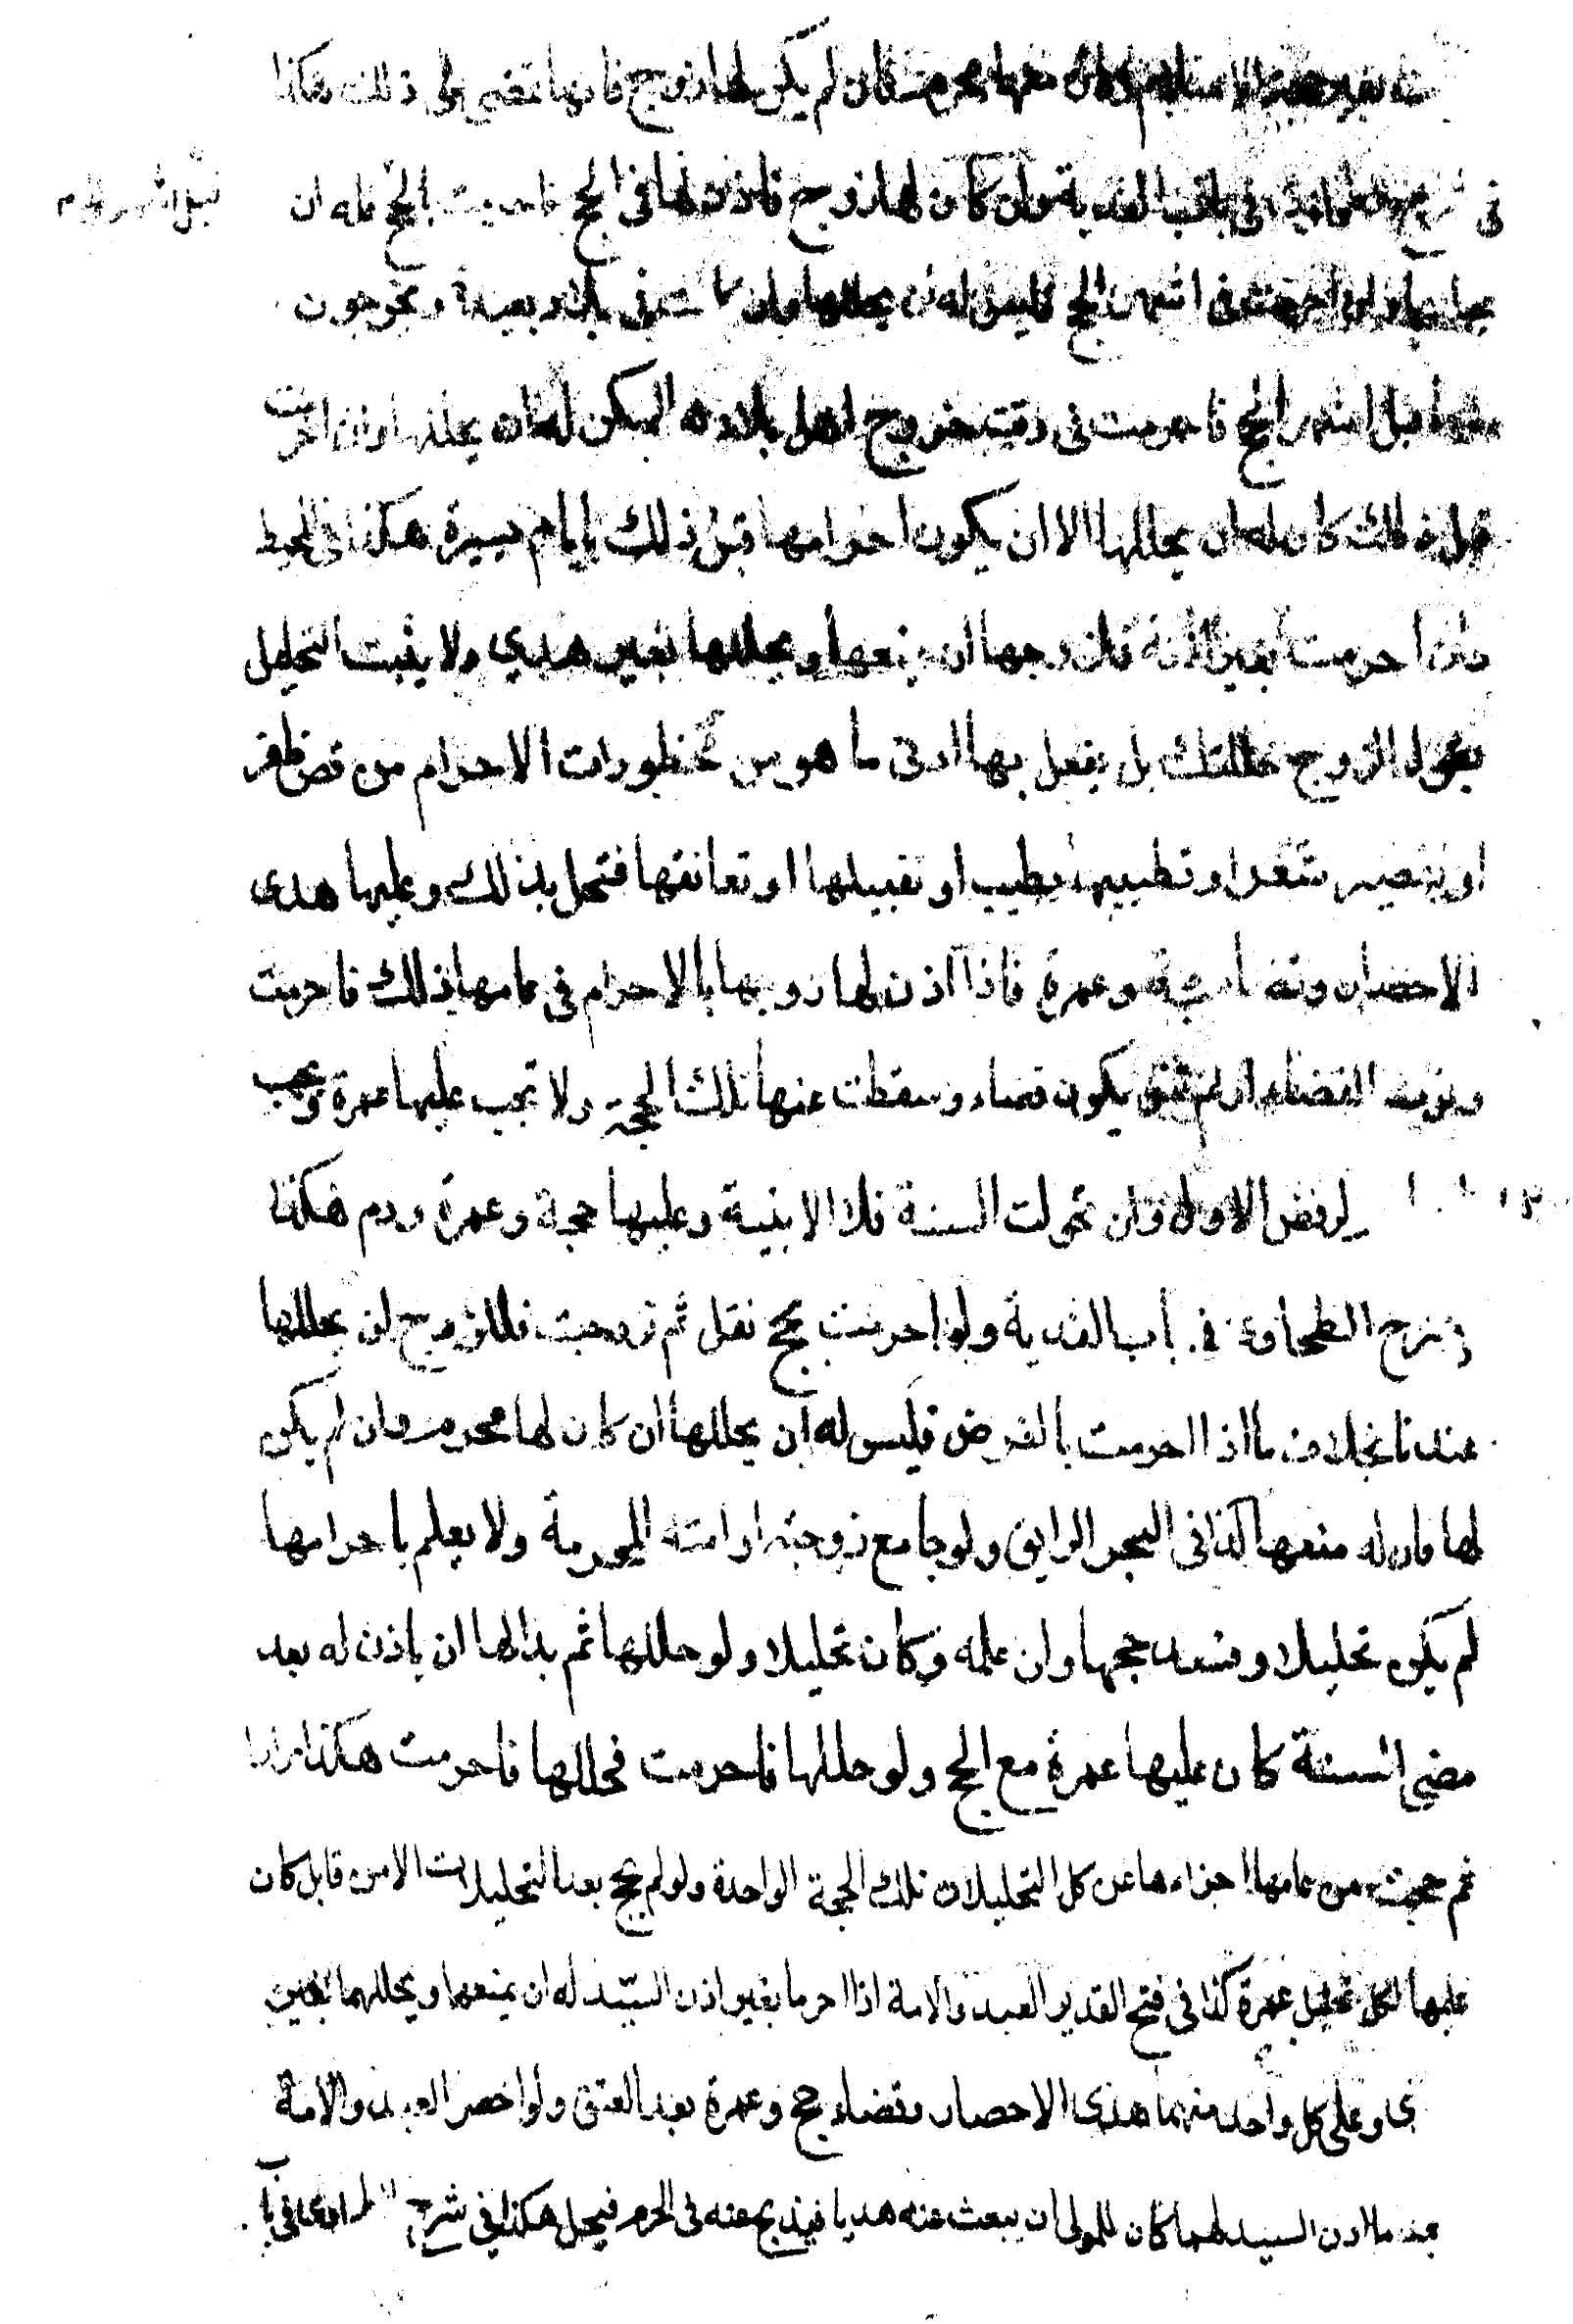 حجة الاسلام وكان معها محرم فان لم يكن لها زوج فانها تمضي في ذلك هكذا
في شرح الطحاوي في باب الفدية وان كان لها زوج فاذن لها في الحج فاحرمت بالحج فله ان
قبل اشهر الحج
يحللها وان احرمت في اشهر الحج فليس له ان يحللها وان كانت في بلاد بعيدة ويخرجون
منها قبل اشهر الحج فاحرمت في وقت خروج اهل بلاده لم يكن له ان يحللها وان احرمت
قبل ذلك كان له ان يحللها الا ان يكون احرامها قبل ذلك بايام يسيرة هكذا في المحيط
وان احرمت بغير اذنه فلزوجها ان يمنعها ويحللها بغير هدي ولا يثبت التحليل
بقول الزوج حللتك بل يفعل بها ادنى ما هو من محظورات الاحرام من قص ظفر
او تقصير شعر او تطييبها بطيب او تقبيلها او تعانقها فتحل بذلك وعليها هدى
الاحصار وقضاء حجة وعمرة فاذا اذن لها زوجها بالاحرام في عامها ذلك فاحرمت
ونوت القضاء او لم تنو يكون قضاء وسقطت عنها تلك الحجة ولا تجب عليها عمرة ويجب
لرفض الاول وان تحولت السنة فلا الا بنية وعليها حجة وعمرة ودم هكذا
في شرح الطحاوي في باب الفدية ولو احرمت بحج نفل ثم تزوجت فللزوج ان يحللها
عندنا بخلاف ما اذا احرمت بالفرض فليس له ان يحللها ان كان لها محرم فان لم يكن
لها فان له منعها كذا في البحر الرايق ولو جامع زوجته او امته المحرمة ولا يعلم باحرامها
لم يكن تحليلا وفسد حجها وان علمه وكان تحليلا ولو حللها ثم بدا لها ان ياذن له بعد
مضى السنة كان عليها عمرة مع الحج ولو حللها فاحرمت فحللها فاحرمت هكذا مرارا
ثم حجت من عامها اجزاءها عن كل التحليلات تلك الحجة الواحدة ولو لم تحج بعد التحليلات الا من قابل كان
عليها لكل تحليل عمرة كذا في فتح القدير العبد والامة اذا احرما بغير اذن السيد له ان يمنعهما ويحللهما بغير
هدى وعلى كل واحد منهما هدى الاحصار وقضاء حج وعمرة بعد العتق ولو احصر العبد والامة
بعد ما اذن السيد لهما كان للمولى ان يبعث عنه هديا فيذبح عنه في الحرم فيحل هكذا في شرح الطحاوي في باب